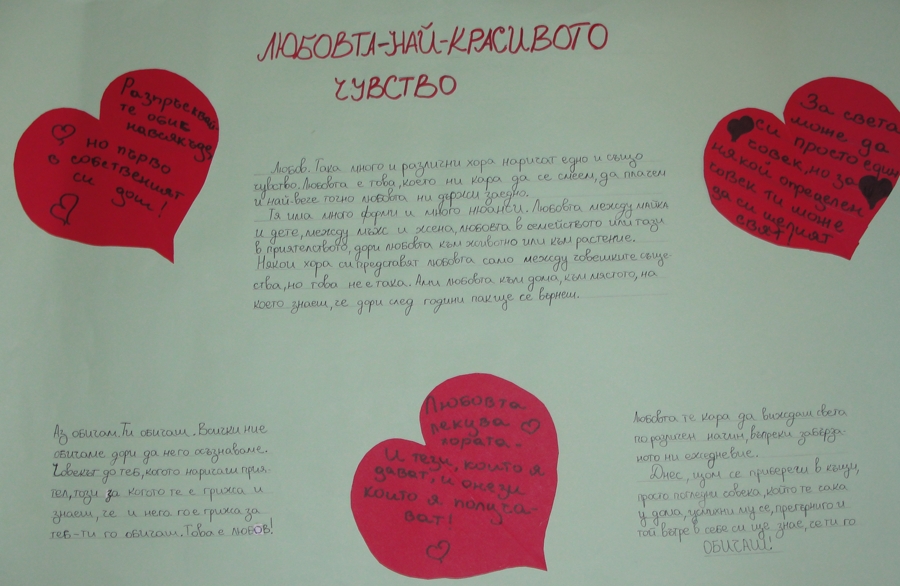 ЛЮБОВТА-НАЙ-КРАСИВОТО
ЧУВСТВО
Разпръсквай-
те обич
навсякъде,
но първо
в собственият
си дом!
Любов. Така много и различни хора наричат едно и също
чувство. Любовта е това, което ни кара да се смеем, да плачем
и най-вече точно любовта ни държи заедно.
Тя има много форми и много нюанси. Любовта между майка
и дете, между мъж и жена, любовта в семейството или тази
в приятелството, дори любовта към животно или към растение.
Някои хора си представят любовта само между човешките същe-
ства, но това не е така. Ами любовта към дома, към мястото, на
което знаеш, че дори след години пак ще се вернеш.
За света
може да
си просто един
човек, но за
някой определен
човек ти може
да си целият
свят!
Аз обичам. Ти обичаш. Всички ние
обичаме дори да не го осъзнаваме.
Човекът до теб, когото наричаш прия-
тел, този за когото те е грижа и
знаеш, че и него го е грижа за
теб-ти го обичаш. Това е любов!
Любовта
лекува
хората-
И тези, които я
дават, и онези
които я получа-
ват!
Любовта те кара да виждаш света
по различен начин, въпреки забърза-
ното ни ежедневие.
Днес, щом се прибереш в къщи,
просто погледни човека, който те чака
у дома, усмихни му се, прегърни го и
той вътре в себе си ще знае, че ти го
ОБИЧАШ!